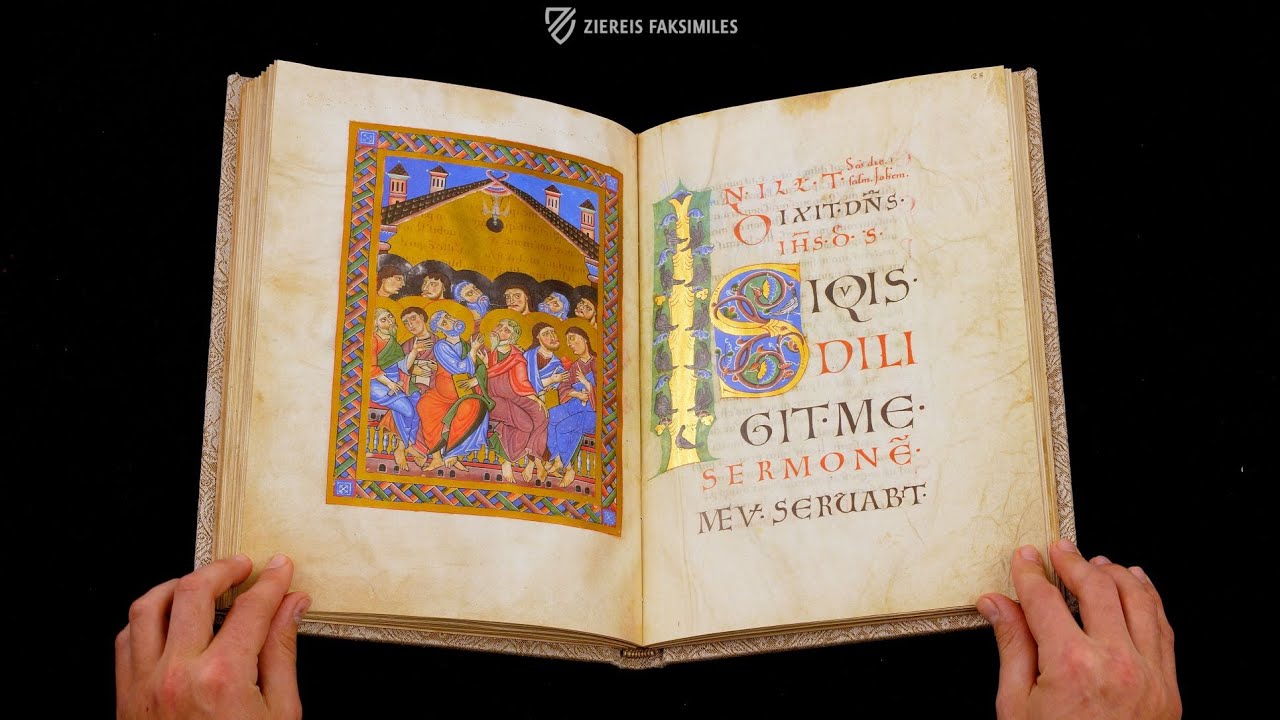 ZIEREIS FAKSIMILES
28
IN·ILL·T· Scd̄m.
IXIT·DN̄S·
IH̄S·D·S·
SIQIS·
DILI
GIT·ME·
SERMONĒ·
MEV̄·SERUABT·